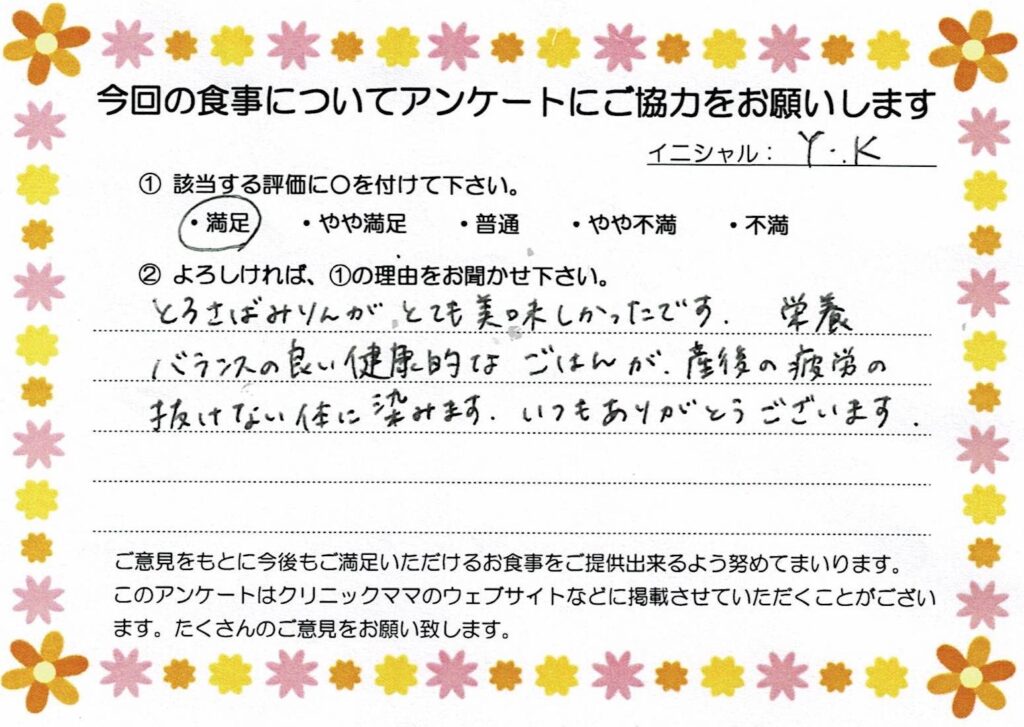 今回の食事についてアンケートにご協力をお願いします
イニシャル： Y.K
① 該当する評価に〇を付けて下さい。
・満足 ・やや満足 ・普通 ・やや不満 ・不満
② よろしければ、①の理由をお聞かせ下さい。
とろさばみりんが とても美味しかったです. 栄養
バランスの良い健康的な ごはんが、産後の疲労の
抜けない体に染みます. いつもありがとうございます.
ご意見をもとに今後もご満足いただけるお食事をご提供出来るよう努めてまいります。
このアンケートはクリニックママのウェブサイトなどに掲載させていただくことがござい
ます。たくさんのご意見をお願い致します。